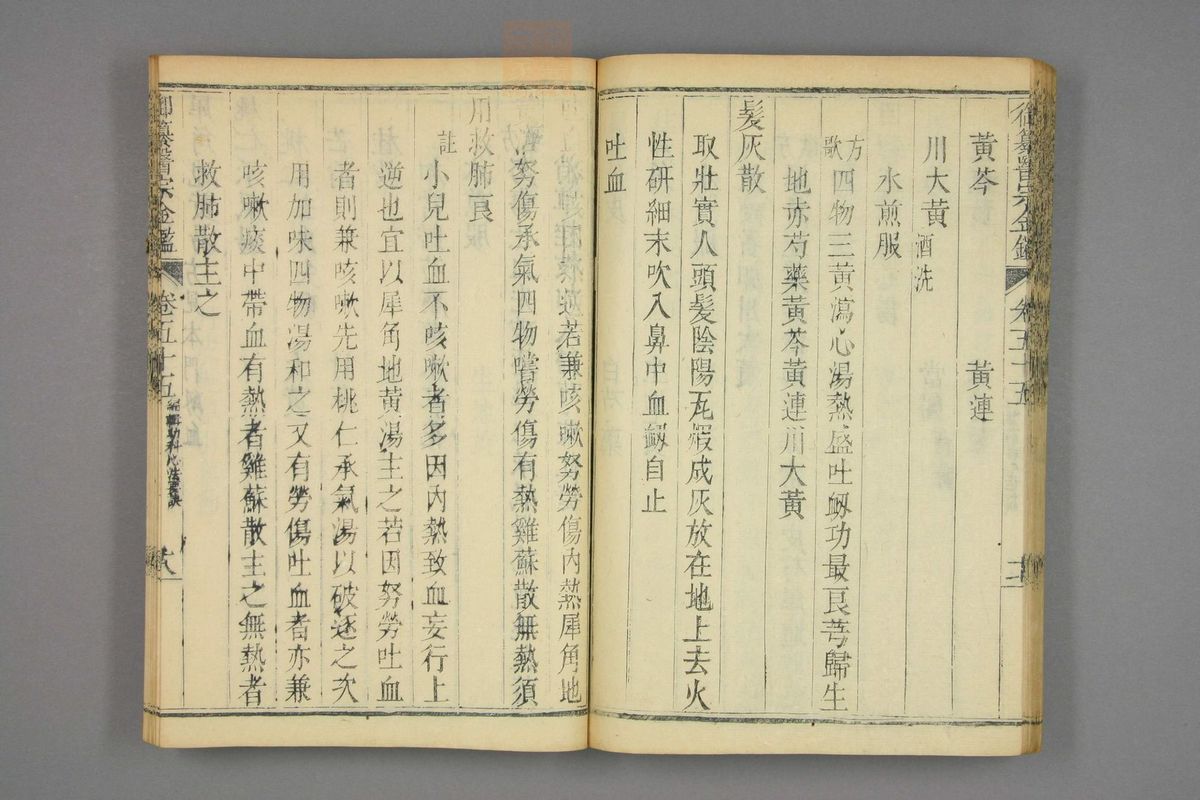 御纂醫宗金鑑 卷五十五
黃芩 黃連
川大黃酒洗
水煎服
方歌 四物三黃瀉心湯熱盛吐衂功最良芎歸生
地赤芍藥黃芩黃連川大黃
髮灰散
取壯實人頭髮陰陽瓦煆成灰放在地上去火
性研細末吹入鼻中血衂自止
吐血
吐血內熱妄行逆若兼咳嗽努勞傷內熱犀角地
努傷承氣四物嘗勞傷有熱雞蘇散無熱須
用救肺良
註 小兒吐血不咳嗽者多因內熱致血妄行上
逆也宜以犀角地黃湯主之若因努勞吐血
者則兼咳嗽先用桃仁承氣湯以破逐之次
用加味四物湯和之又有勞傷吐血者亦兼
咳嗽痰中帶血有熱者雞蘇散主之無熱者
救肺散主之
御纂醫宗金鑑 卷五十五 編輯幼科心法要訣